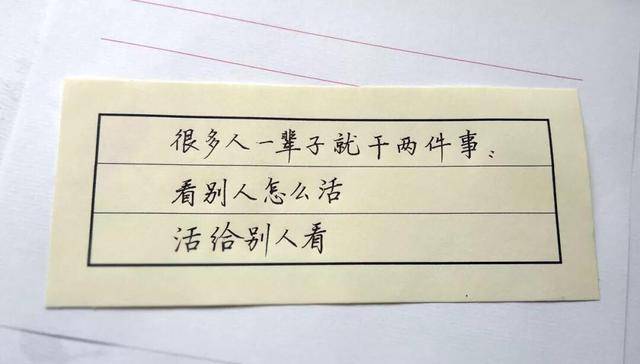 很多人一辈子就干两件事:
看别人怎么活
活给别人看